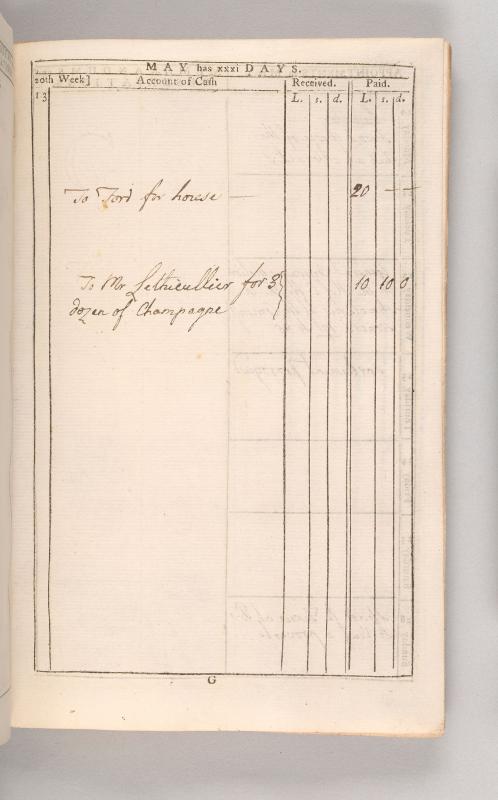 MAY has xxxi DAYS.
20th Week] Account of Cash Received. Paid.
13 L. s. d. L. s. d.
To Ford for house — 20 — —
To Mr Lethieullier for 3 10 10 0
dozen of Champagne
G